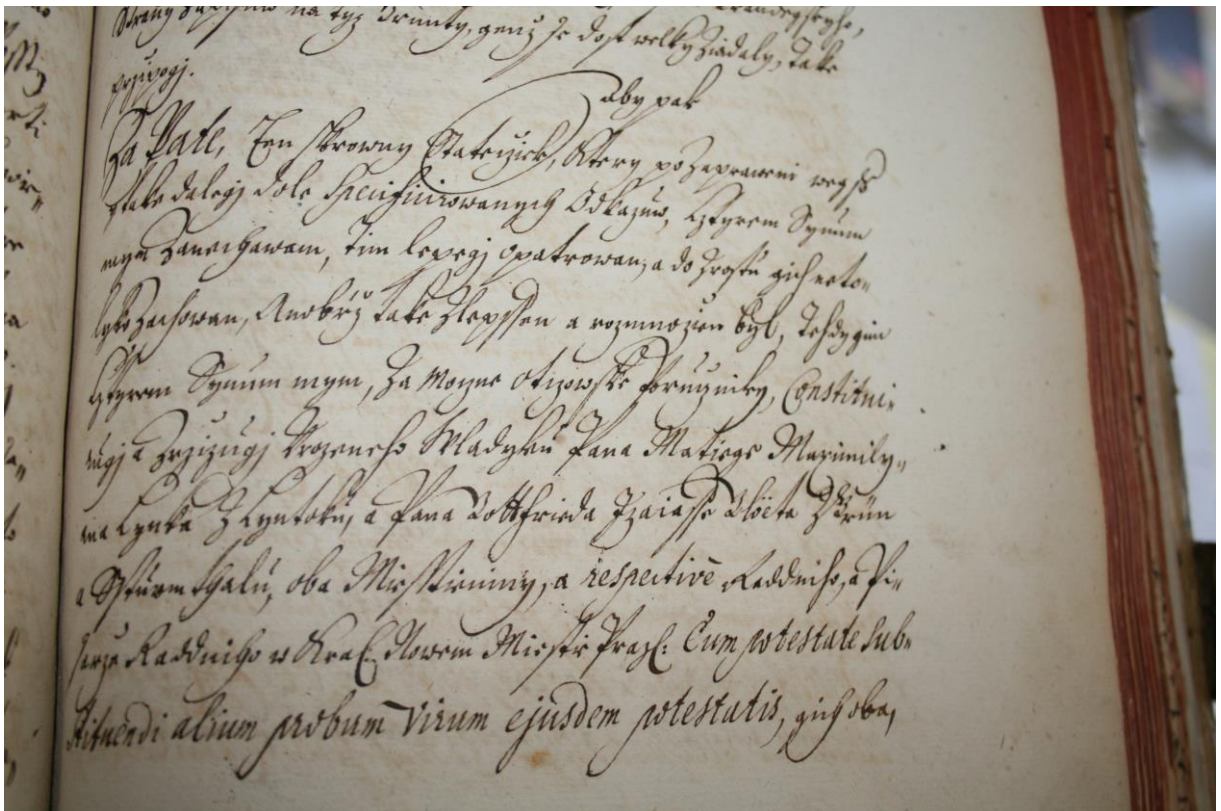 na tyz Grunty, genz se dost welky zawdaly, Take
przipogj.
aby pak
Za Paté, Ten skrowny Statecziek, Ktery po zaprawení
a take dalegj dole Specificirowanych Odkazuw, Cztyrem Synum
mym Zanechawam, Tim lepegj opatrowan, a do zrostu gich neto-
lyko Zachowan, Nobrz Take Zlepssen a rozmnozen byl, Tehdy gim
Cztyrem Synum mym, Za Moczne Otczowské Poruczniky, Constitui-
rugj a Zrzizugj Urozeneho Wladyku Pana Matiege Maximily-
ana Lynka Z Lyntoku, a Pana Gottfrieda Izaiasse Z Grün
a Sturmthalu, oba Miesstieniny, a respectivè Raddniho, a Pi-
sarze Raddniho w Kral: Nowem Miestie Prazs: Cum potestate Sub-
stituendi alium probum Virum ejusdem potestatis, gich oba,